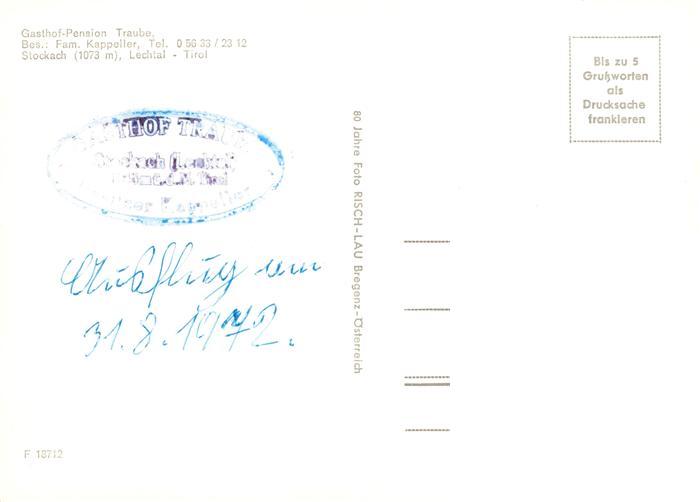 Gasthof-Pension Traube,
Bes.: Fam. Kappeller, Tel. 0 56 33 / 23 12
Stockach (1073 m), Lechtal - Tirol
Bis zu 5
Grußworten
als
Drucksache
frankieren
GASTHOF TRAUBE
Stockach (Lechtal)
Tirol
Kappeller
80 Jahre Foto RISCH-LAU Bregenz-Österreich
Ausflug am
31.8.1972.
F 18712